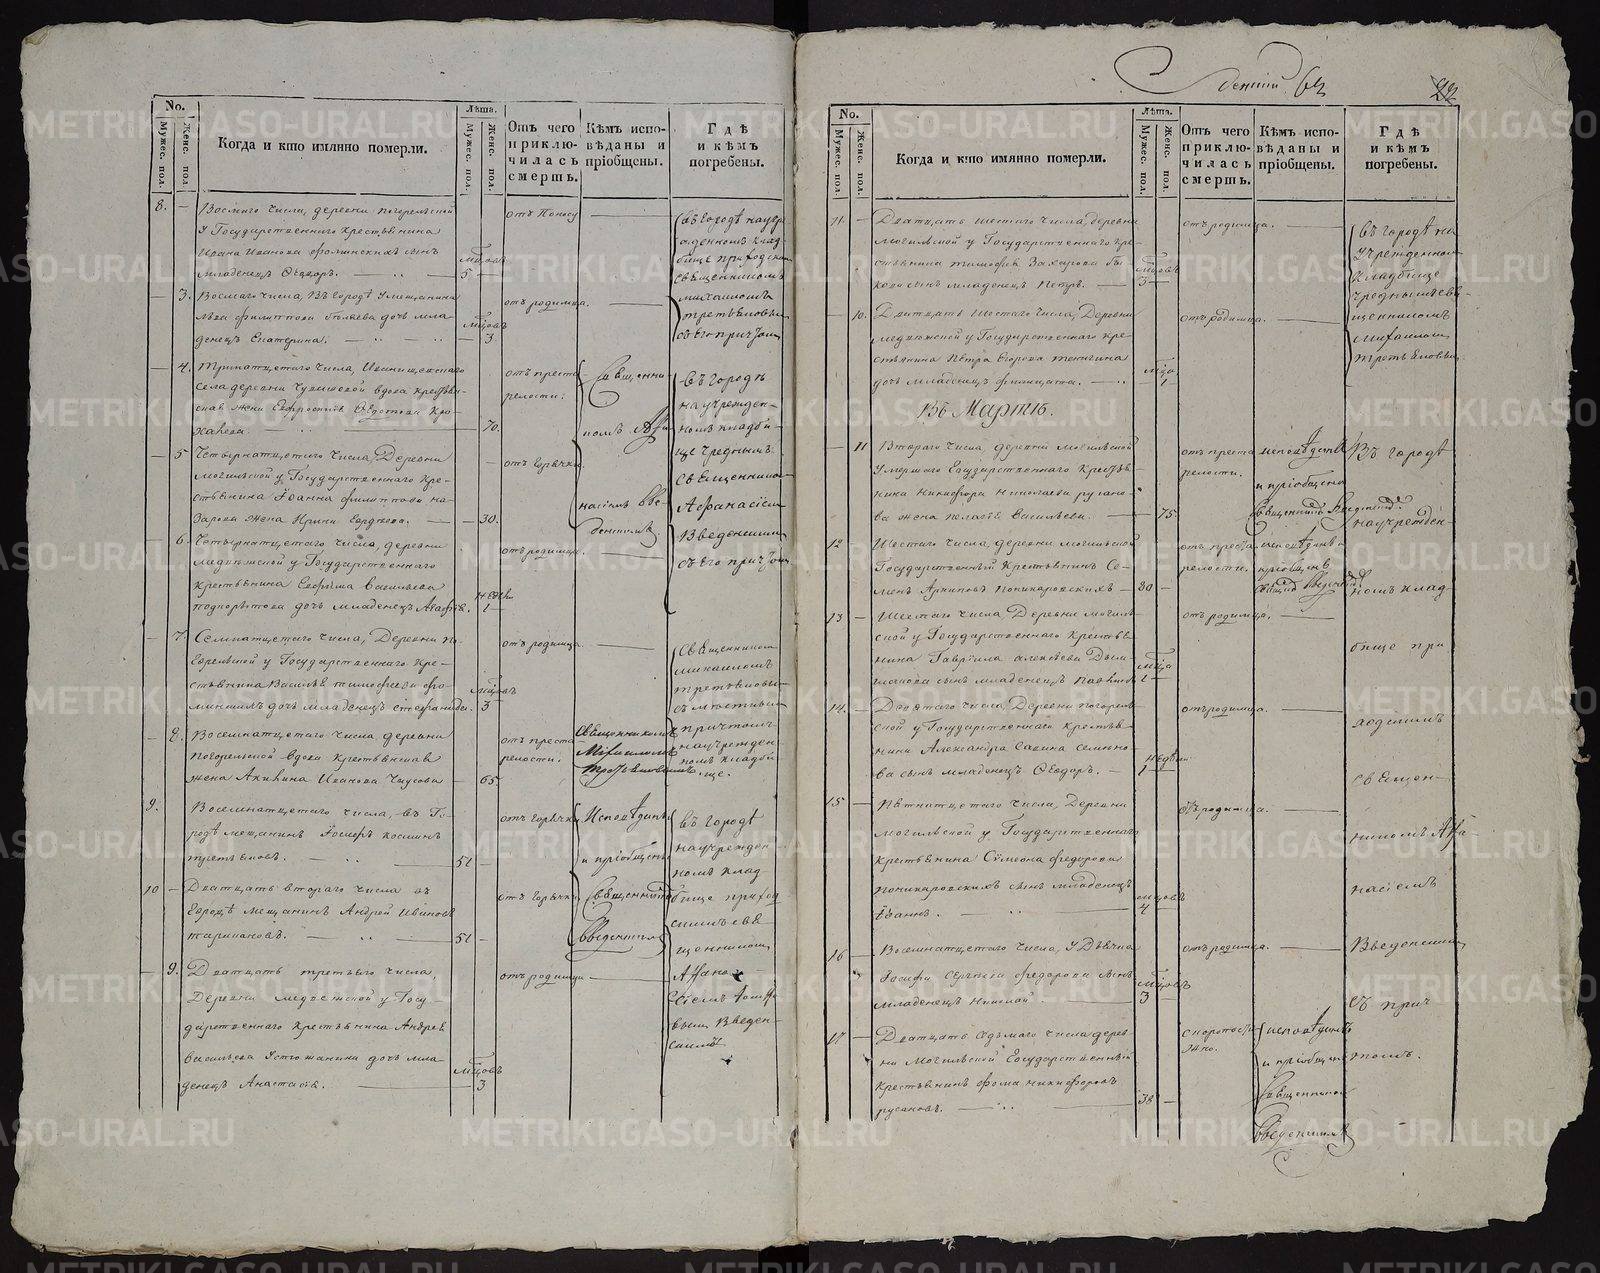 денний 62
22
No.
Мужес. пол.
Женс. пол.
Когда и кто имянно померли.
Лѣта.
Мужес. пол.
Женс. пол.
Отъ чего приклю-чилась смерть.
Кѣмъ испо-вѣданы и пріобщены.
Гдѣ и кѣмъ погребены.
8. —
Восмаго числа, деревни погорельской
у Государственнаго крестьянина
Ивана Иванова фоминскихъ сынъ
младенецъ Ѳеодоръ.
мцовъ
5
отъ поносу
въ городѣ на учре
жденномъ клад
бище приходскимъ
священникомъ
михаиломъ
третьяковымъ
съ его причтомъ
— 3.
Восмаго числа, въ городѣ у мещанина
филиппова беляева дочь мла-
денецъ Екатерина.
мцовъ
3
отъ родимца.
— 4.
села деревни вдова крестьян
ская жена Евфросинія Ѳедотова
70.
отъ преста
релости.
священни
комъ Афа
насіемъ Вве
денскимъ
въ городѣ
на учрежден-
номъ кладби
ще
священникомъ
Афанасіемъ
Введенскимъ
съ его причтомъ
— 5
Четырнатцетаго числа, Деревни
могильской у Государственнаго кре-
стьянина Іоанна филиппова на-
зарова жена Ирина Егорова.
30.
отъ горячки
— 6.
Четырнатцетаго числа, деревни
у Государственнаго
крестьянина Ефрема Васильева
дочь младенецъ
недель
1
отъ родимца.
— 7.
Семнатцетаго числа, Деревни по-
горельской у Государственнаго кре-
стьянина Василья тимофеева фо-
минскихъ дочь младенецъ стефанида.
мцовъ
3
отъ родимца.
священникомъ
михаиломъ
третьяковымъ
причтомъ
на учрежден
номъ кладби
ще.
— 8.
Восемнатцетаго числа деревни
погорельской вдова крестьянская
жена Акилина Иванова Чаусова
65.
отъ преста
релости.
священникомъ
Михаиломъ
Третьяковымъ
9.
Восемнатцетаго числа, въ Го-
родѣ мещанинъ Іосифъ косминъ
третьяковъ.
51
отъ горячки
Исповѣданъ
и пріобщенъ
священникомъ
Введенскимъ
въ городѣ
на учрежден
номъ клад
бище приход
скимъ свя
щенникомъ
Афана
сіемъ
Введен-
скимъ
10 —
Дватцать втораго числа въ
городѣ мещанинъ Андрей Ивановъ
51
отъ горячки
— 9.
Дватцать третьяго числа,
Деревни медвежской у Госу-
дарственнаго крестьянина Андрея
Васильева Устюжанина дочь мла-
денецъ Анастасія.
мцовъ
3
отъ родимца
No.
Мужес. пол.
Женс. пол.
Когда и кто имянно померли.
Лѣта.
Мужес. пол.
Женс. пол.
Отъ чего приклю-чилась смерть.
Кѣмъ испо-вѣданы и пріобщены.
Гдѣ и кѣмъ погребены.
11. —
Дватцать шестаго числа, деревни
могильской у Государственнаго кре-
стьянина тимофея Захарова бы-
кова сынъ младенецъ Петръ.
мцовъ
3
отъ родимца.
въ городѣ на
учрежденномъ
кладбище
священникомъ
михаиломъ
третьяковымъ
— 10.
Дватцать шестаго числа, Деревни
медвежской у Государственнаго кре-
стьянина Петра Егорова
дочь младенецъ
мца
1
отъ родимца.
Въ Мартѣ.
— 11
Втораго числа, деревни могильской
умершаго Государственнаго крестья
нина Никифора Николаева русано-
ва жена пелагія Васильева.
75.
отъ преста
релости.
исповѣдана
и пріобщена
священникомъ Введенскимъ
Въ городѣ
на учрежден-
номъ клад
бище при
ходскимъ
священ-
никомъ Афа-
насіемъ
Введенскимъ
съ прич
томъ.
12
Шестаго числа, деревни могильской
Государственный крестьянинъ Се-
менъ Архиповъ Поникаровскихъ
80
отъ преста
релости.
исповѣданъ и
пріобщенъ
Введенскимъ
13 —
Шестаго числа, Деревни могиль-
ской у Государственнаго крестья
нина Гавріила алексѣева Дым-
шакова сынъ младенецъ
мца
1
отъ родимца.
14. —
Девятаго числа, Деревни погорель-
ской у Государственнаго крестья-
нина Александра Савина семено-
ва сынъ младенецъ Ѳеодоръ.
недѣли
1
отъ родимца.
15 —
Пятнатцетаго числа, Деревни
могильской у Государственнаго
крестьянина Сѵмеона федорова
поникаровскихъ сынъ младенецъ
Іоаннъ.
мцовъ
4
отъ родимца.
16 —
Восемнатцетаго числа, у Дьячка
Іосифа Сергѣева федорова сынъ
младенецъ Николай.
мцовъ
3
отъ родимца.
17 —
Дватцать седьмаго числа дерев-
ни Могильской Государственный
крестьянинъ фома никифоровъ
русановъ.
38
скоропости
жно.
исповѣданъ
и пріобщенъ
священникомъ
Введенскимъ
METRIKI.GASO-URAL.RU